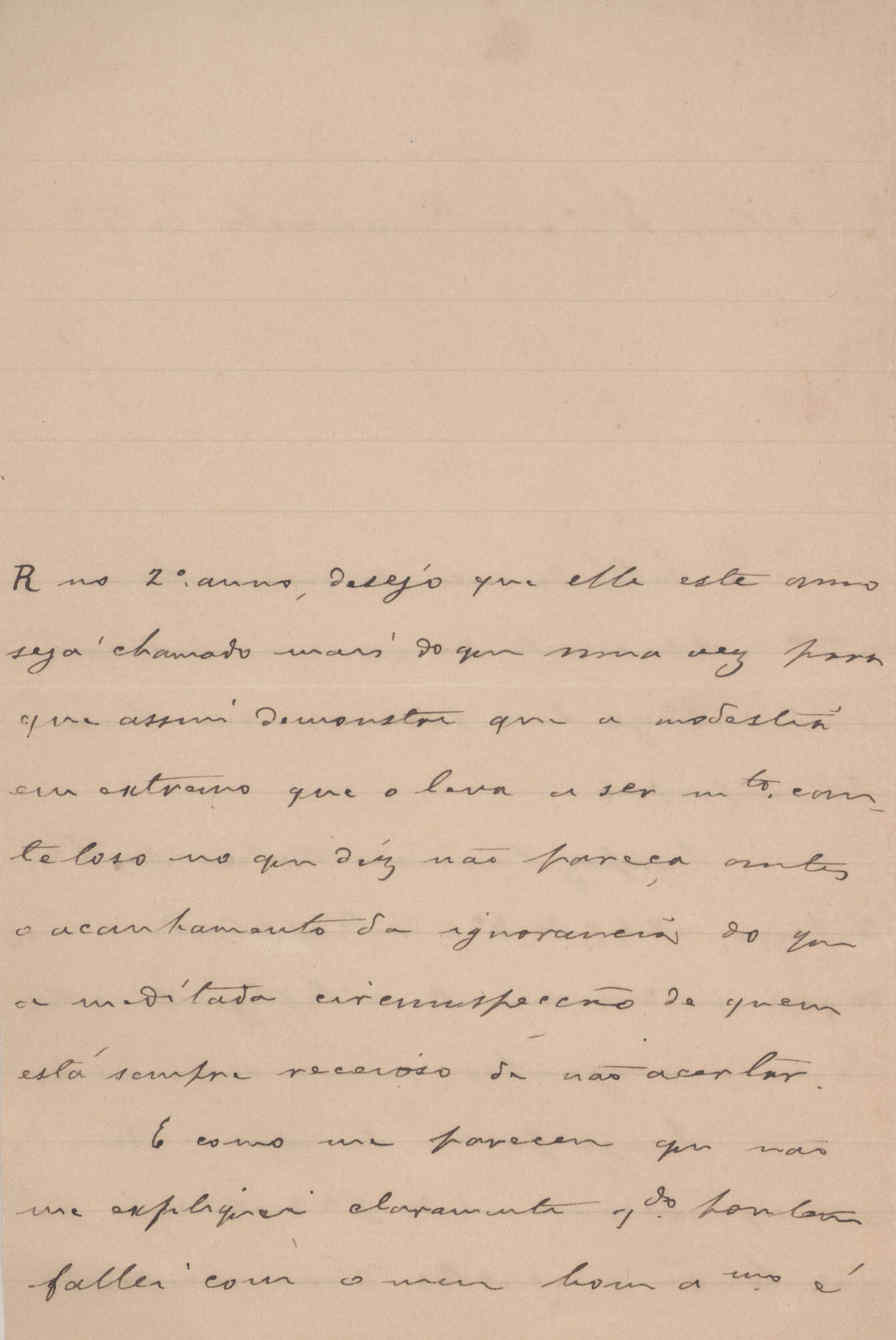 R no 2º. anno, desejo que elle este anno
seja chamado mais do que uma vez para
que assim demonstre que a modestia
em extremo que o leva a ser mto. cau-
teloso no que diz não pareça antes
o acanhamento da ignorancia do que
a meditada circumspecção de quem
está sempre receioso de não acertar.
E como me pareceu que não
me expliquei claramente qdo. hontem
fallei com o meu bom amo é